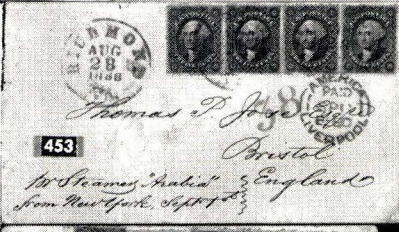 RICHMOND
AUG
28
1888
VA.
AMERICA
PAID
LIVERPOOL
38
Thomas P. Jose
Bristol
England
453
pr Steamer "Arabia"
from New York, Sept 1st